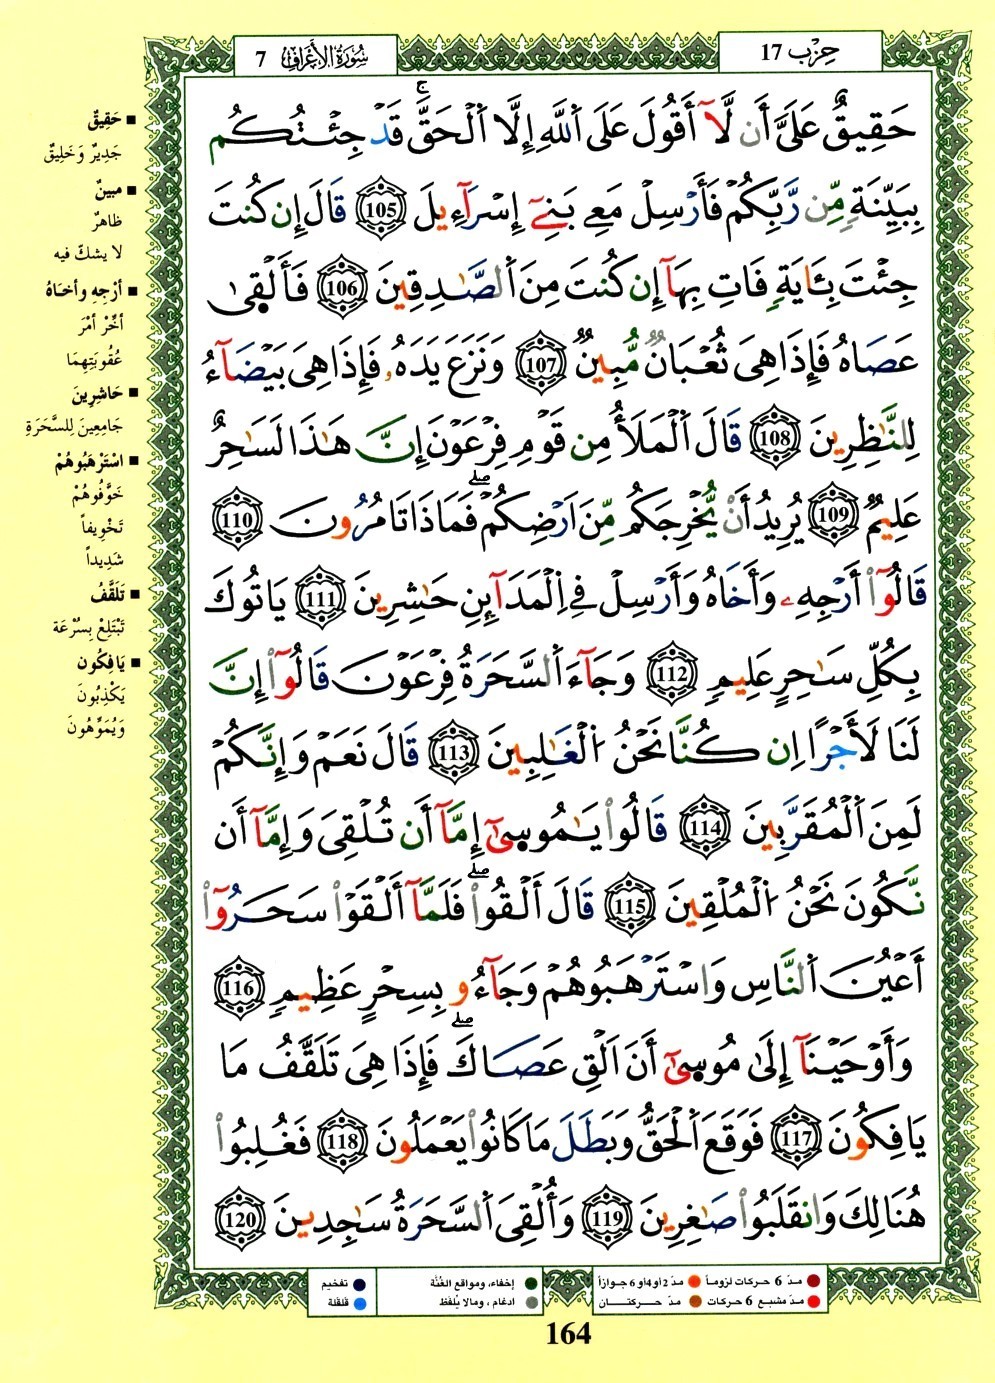 حِزْب 17
سُورَةُ الأَعْرَاف 7
حَقِيقٌ عَلَيَّ أَن لَّآ أَقُولَ عَلَى اَ۬للَّهِ إِلَّا اَ۬لْحَقَّۖ قَدْ جِئْتُكُم
بِبَيِّنَةٖ مِّن رَّبِّكُمْ فَأَرْسِلْ مَعِے بَنِےٓ إِسْرَآءِيلَ 105 قَالَ إِن كُنتَ
جِئْتَ بِـَٔايَةٖ فَاتِ بِهَآ إِن كُنتَ مِنَ اَ۬لصَّٰدِقِينَ 106 فَأَلْقۭيٰ
عَصَاهُ فَإِذَا هِيَ ثُعْبَانٞ مُّبِينٞ 107 وَنَزَعَ يَدَهُۥ فَإِذَا هِيَ بَيْضَآءُ
لِلنَّٰظِرِينَ 108 قَالَ اَ۬لْمَلَأُ مِن قَوْمِ فِرْعَوْنَ إِنَّ هَٰذَا لَسَٰحِرٌ
عَلِيمٞ 109 يُرِيدُ أَنْ يُّخْرِجَكُم مِّنَ اَرْضِكُمْۖ فَمَاذَا تَامُرُونَ 110
قَالُوٓاْ أَرْجِهِۦ وَأَخَاهُ وَأَرْسِلْ فِے اِ۬لْمَدَآئِنِ حَٰشِرِينَ 111 يَاتُوكَ
بِكُلِّ سَٰحِرٍ عَلِيمٖ 112 وَجَآءَ اَ۬لسَّحَرَةُ فِرْعَوْنَ قَالُوٓاْ إِنَّ
لَنَا لَأَجْرًا اِن كُنَّا نَحْنُ اُ۬لْغَٰلِبِينَ 113 قَالَ نَعَمْ وَإِنَّكُمْ
لَمِنَ اَ۬لْمُقَرَّبِينَ 114 قَالُواْ يَٰمُوسۭيٰٓ إِمَّآ أَن تُلْقِيَ وَإِمَّآ أَن
نَّكُونَ نَحْنُ اُ۬لْمُلْقِينَ 115 قَالَ أَلْقُواْۖ فَلَمَّآ أَلْقَوْاْ سَحَرُوٓاْ
أَعْيُنَ اَ۬لنَّاسِ وَاسْتَرْهَبُوهُمْ وَجَآءُو بِسِحْرٍ عَظِيمٖ 116
وَأَوْحَيْنَآ إِلَىٰ مُوسۭيٰٓ أَنَ اَلْقِ عَصَاكَۖ فَإِذَا هِيَ تَلَقَّفُ مَا
يَافِكُونَ 117 فَوَقَعَ اَ۬لْحَقُّ وَبَطَلَ مَا كَانُواْ يَعْمَلُونَ 118 فَغُلِبُواْ
هُنَالِكَ وَانقَلَبُواْ صَٰغِرِينَ 119 وَأُلْقِيَ اَ۬لسَّحَرَةُ سَٰجِدِينَ 120
■ حَقِيقٌ
جَدِيرٌ وَخَلِيقٌ
■ مبينٌ
ظاهرٌ
لا يشكّ فيه
■ أرْجِهِ وأخاهُ
أخِّرْ أمْرَ
عُقُوبَتِهِمَا
■ حَاشِرِينَ
جَامِعِينَ لِلسَّحَرَةِ
■ اسْتَرْهَبُوهُمْ
خَوَّفُوهُمْ
تَخْوِيفاً
شَدِيداً
■ تَلَقَّفُ
تَبْتَلِعُ بِسُرْعَة
■ يَافِكُون
يَكْذِبُونَ
وَيُمَوِّهُونَ
مدّ 6 حركات لزوماً مدّ 2 أو 4 أو 6 جوازاً
مدّ مشبع 6 حركات مدّ حركتان
إخفاء، ومواقع الغُنَّة
ادغام، ومالا يُلفَظ
تفخيم
قلقلة
164